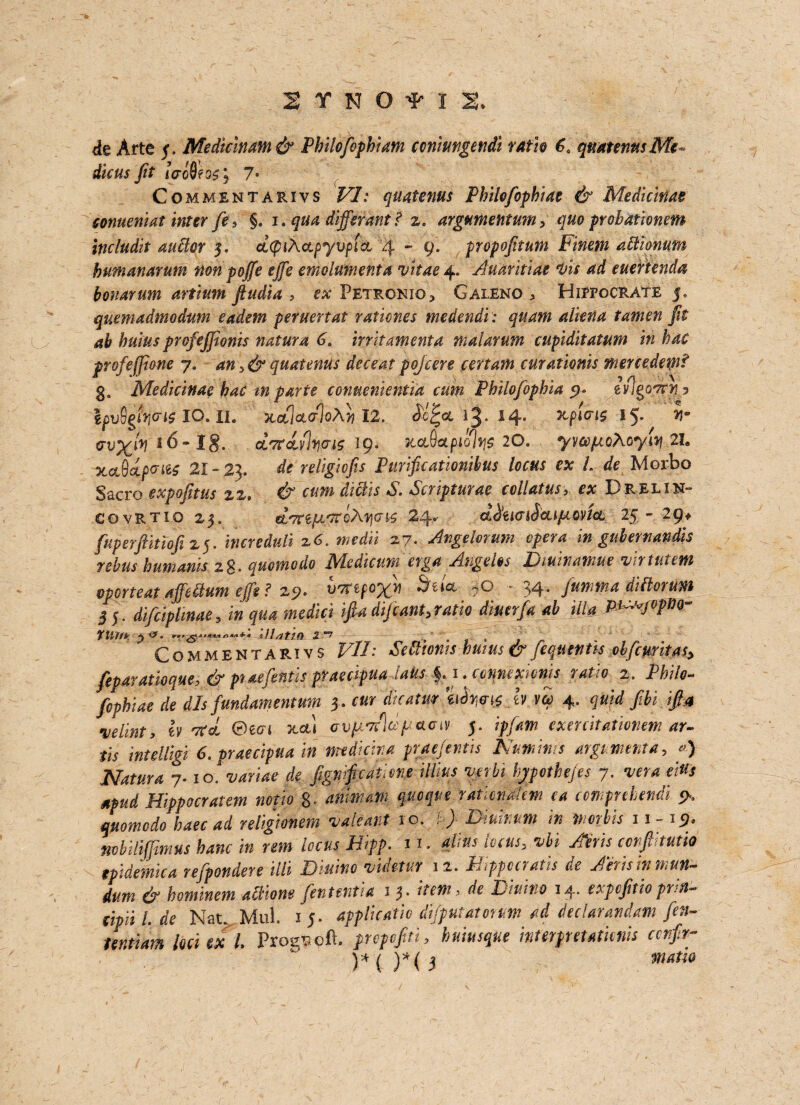 ΣΥΝΟΨΙΣ.
de Arte 5. Medicinam & Philosophiam coniungendi ratio 6. quatenus Me-
dicus sit ἰσόθεος; 7.
COMMENTARIVS VI: quatenus Philosophiae & Medicinae
conueniat inter se, §. 1. qua differant? 2. argumentum, quo probationem
includit auctor 3. ἀφιλαργυρία 4 - 9. propositum Finem actionum
humanarum non posse esse emolumenta vitae 4. Auaritiae vis ad euertenda
bonarum artium studia, ex PETRONIO, GALENO, HIPPOCRATE 5.
quemadmodum eadem peruertat rationes medendi: quam aliena tamen sit
ab huius professionis natura 6. irritamenta malarum cupiditatum in hac
professione 7. an, & quatenus deceat poscere certam curationis mercedem?
8. Medicinae hac in parte conuenientia cum Philosophia 9. ἐντροπὴ,
ἐρυθρίησις 10. 11. καταστολὴ 12. δόξα 13. 14. κρίσις 15. ἡ-
συχίη 16 - 18. ἀπάντησις 19. καθαριότης 20. γνωμολογίη 21.
καθάρσιες 21 - 23. de religiosis Purificationibus locus ex l. de Morbo
Sacro expositus 22, & cum dictis S. Scripturae collatus, ex DRELIN-
COVRTIO 23. ἀπεμπόλησις 24. ἀδεισιδαιμονία 25 - 29.
superstitiosi 25. increduli 26. medii 27. Angelorum opera in gubernandis
rebus humanis 28. quomodo Medicum erga Angelos Diuinamue virtutem
oporteat affectum esse? 29. ὑπεροχὴ θεία 30 - 34. summa dictorum
35. disciplinae, in qua medici ista discant, ratio diuersa ab illa
illatio
COMMENTARIVS VII: Sectionis huius & sequentis obscuritas,
separatioque, & praesentis praecipua laus §. 1. connexionis ratio 2. Philo-
sophiae de dIs fundamentum 3. cur dicatur εἴδησις ἐν νῷ 4. quid sibi ista
velint, ἐν πᾶ Θεσι καὶ συμπτώμασιν 5. ipsam exercitationem ar-
tis intelligi 6. praecipua in medicina praesentis Numinis argumenta, α)
Natura 7-10. variae de significatione illius verbi hypotheses 7. vera eius
apud Hippocratem notio 8. animam quoque rationalem ea comprehendi 9.
quomodo haec ad religionem valeant 10. Diuinum in morbis 11 - 19.
nobilissimus hanc in rem locus Hipp. 11. alius locus, vbi Aëris constitutio
epidemica respondere illi Diuino videtur 12. Hippocratis de Aëris in mun-
dum & hominem actione sententia 13. item, de Diuino 14. expositio prin-
cipii l. de Nat. Mul. 15. applicatio disputatorum ad declarandam sen-
tentiam loci ex l. Prognost. propositi, huiusque interpretationis confir-
)*( )*( 3 matio